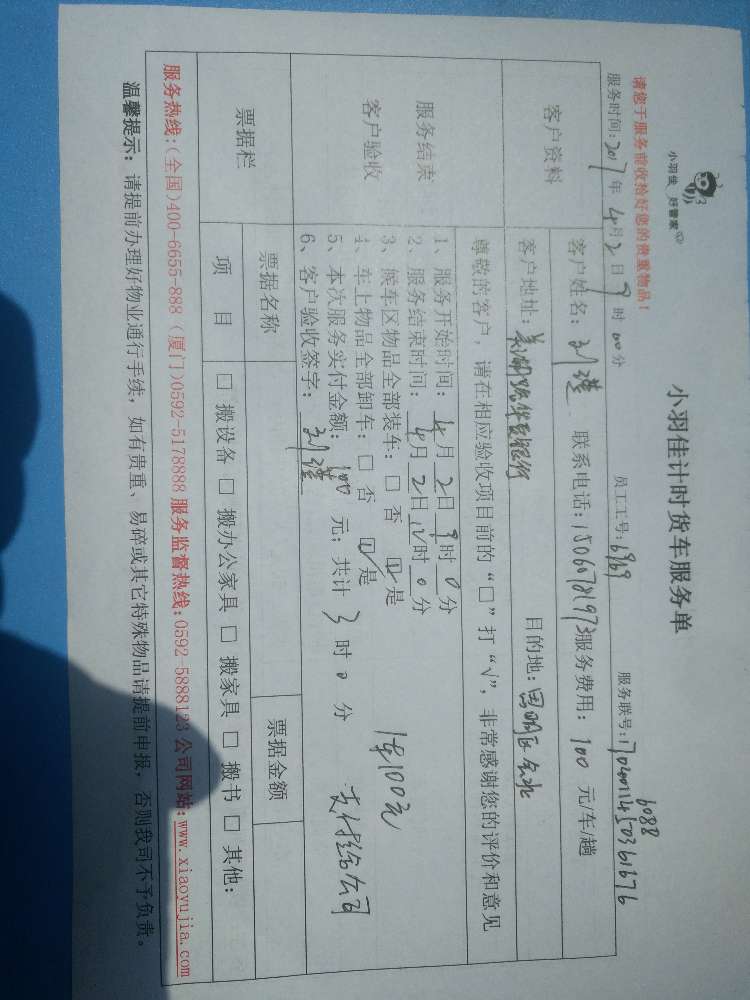 小羽佳 好管家
小羽佳计时货车服务单
请您于服务前收拾好您的贵重物品!
服务时间: 2017年4月2日9时00分 员工工号: 6969 服务联号:
6088
客户资料
客户姓名: 联系电话: 15060781973 服务费用: 100元/车/趟
客户地址: 目的地:
尊敬的客户,请在相应验收项目前的“□”打“√”,非常感谢您的评价和意见
服务结束
客户验收
1、服务开始时间: 4月2日9时0分
2、服务结束时间: 4月2日12时0分
3、候车区物品全部装车: □ 否 ☑ 是
4、车上物品全部卸车: □ 否 ☑ 是
5、本次服务实付金额: 100元; 共计3时0分
6、客户验收签字:
1车100元
支付给公司
票据栏
票据名称 票据金额
项 目 □ 搬设备 □ 搬办公家具 □ 搬家具 □ 搬书 □ 其他:
服务热线:(全国)400-6655-888 (厦门)0592-5178888 服务监督热线:0592-5888123 公司网站:www.xiaoyujia.com
温馨提示: 请提前办理好物业通行手续, 如有贵重、易碎或其它特殊物品请提前申报, 否则我司不予负责。